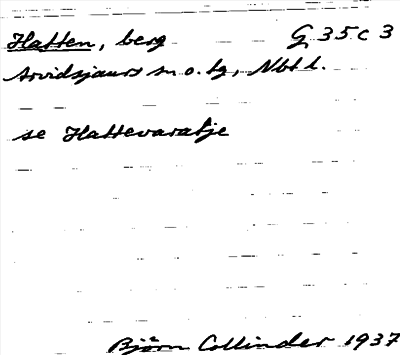 Hatten, berg G 35 c 3
Arvidsjaurs sn o. tg, Nbt l.
se Hattevaratje
Björn Collinder 1937